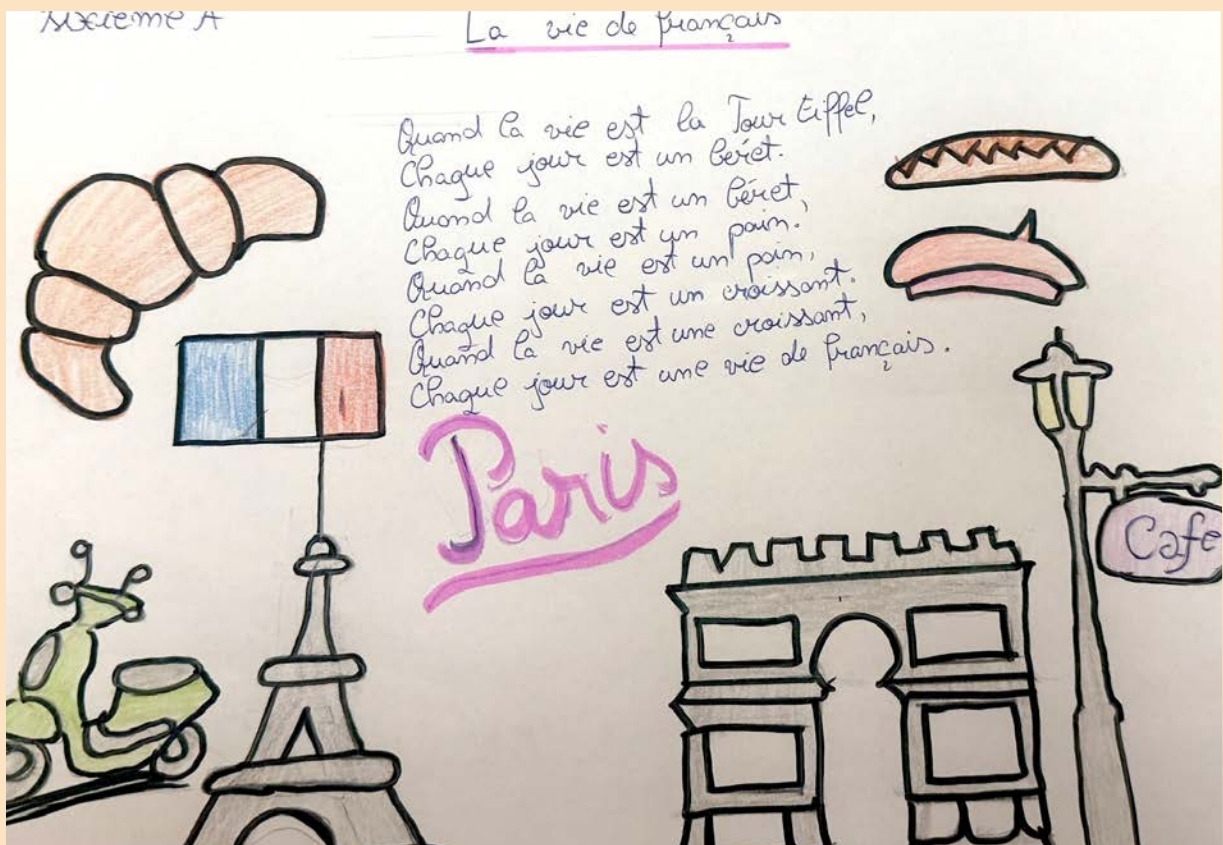 sixième A
La vie de français
Quand la vie est la Tour Eiffel,
Chaque jour est un béret.
Quand la vie est un béret,
Chaque jour est un pain.
Quand la vie est un pain,
Chaque jour est un croissant.
Quand la vie est une croissant,
Chaque jour est une vie de français.
Paris
Cafe